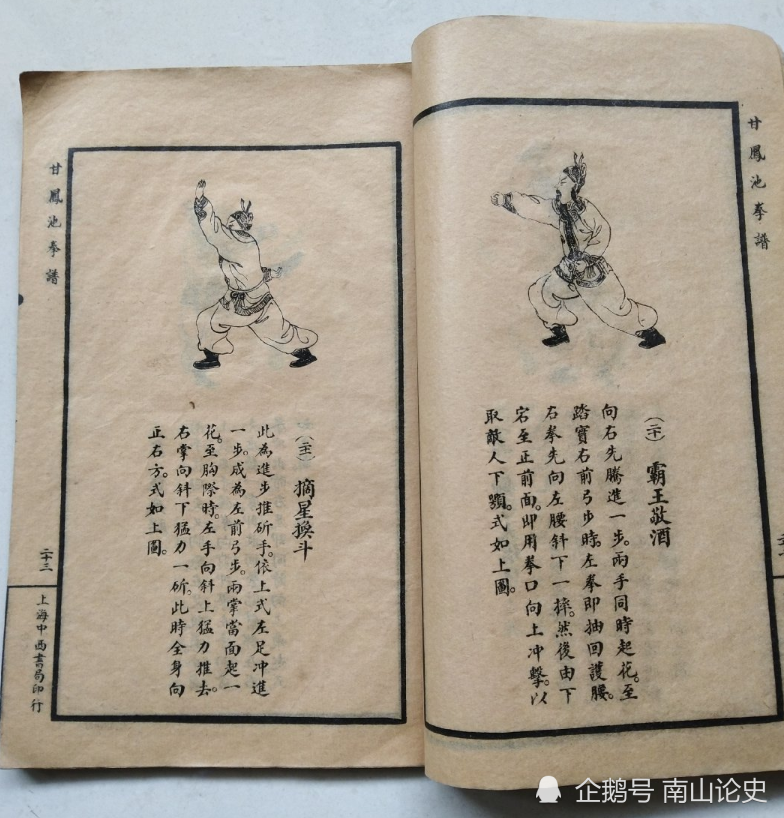 甘鳳池拳譜
霸王敬酒
向右先騰進一步。兩手同時起花。至
踏實右前弓步時。左拳即抽回護腰。
右拳先向左腰斜下一摔。然後由下
宕至正前面。即用拳口向上冲擊。以
取敵人下顎。式如上圖。
摘星換斗
此為進步推斫手。依上式左足冲進
一步。成為左前弓步。兩掌當面起一
花。至胸際時。左手向斜上猛力推去。
右掌向斜下猛力一斫。此時全身向
正右方。式如上圖。
甘鳳池拳譜
二十三
上海中西書局印行
企鹅号 南山论史